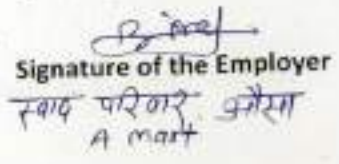 Signature of the Employer
स्वाद परिवार औसा
A mart